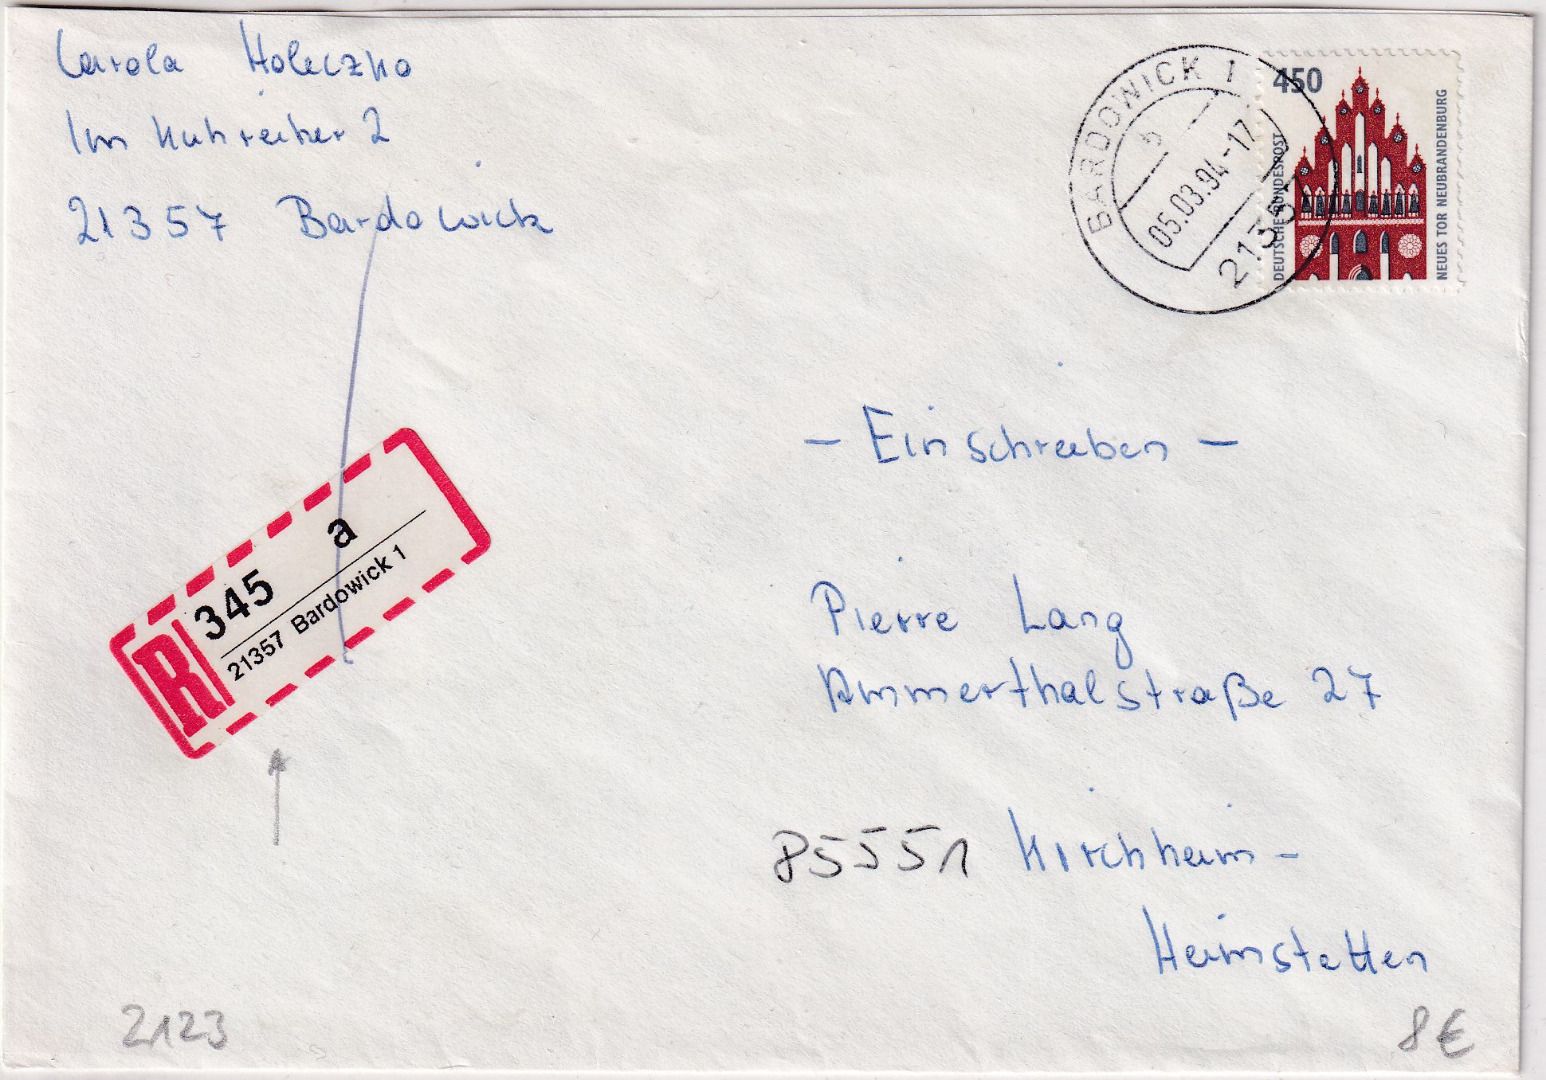 Carola Holeczko
Im Kuhreiher 2
21357 Bardowick
BARDOWICK 1
b
05.03.94-17
21357
450
DEUTSCHE BUNDESPOST
NEUES TOR NEUBRANDENBURG
- Einschreiben -
R 345 a
21357 Bardowick 1
Pierre Lang
Ammerthalstraße 27
85551 Kirchheim-
Heimstetten
2123
8€